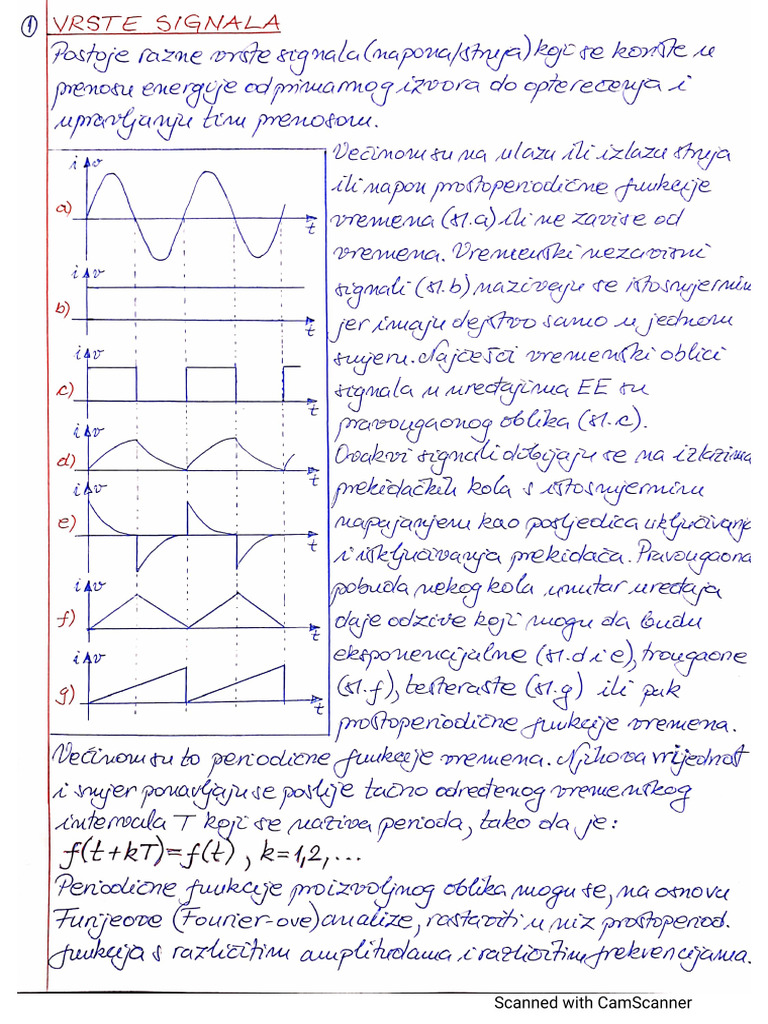 1 VRSTE SIGNALA
Postoje razne vrste signala (napona/struja) koji se koriste u
prenosu energije od primarnog izvora do opterećenja i
upravljanju tim prenosom.
i v
a)
t
i v
b)
t
i v
c)
t
i v
d)
t
i v
e)
t
i v
f)
t
i v
g)
t
Većinom su na ulazu ili izlazu struja
ili napon prostoperiodične funkcije
vremena (sl.a) ili ne zavise od
vremena. Vremenski nezavisni
signali (sl.b) nazivaju se istosmjernim
jer imaju dejstvo samo u jednom
smjeru. Najčešći vremenski oblici
signala u uređajima EE su
pravougaonog oblika (sl.c).
Ovakvi signali dobijaju se na izlazima
prekidačkih kola s istosmjernim
napajanjem kao posljedica uključivanja
i isključivanja prekidača. Pravougaona
pobuda nekog kola unutar uređaja
daje odzive koji mogu da budu
eksponencijalne (sl.d i e), trougaone
(sl.f), testeraste (sl.g) ili pak
prostoperiodične funkcije vremena.
Većinom su to periodične funkcije vremena. Njihova vrijednost
i smjer ponavljaju se poslije tačno određenog vremenskog
intervala T koji se naziva perioda, tako da je:
f(t+kT)=f(t), k=1,2,...
Periodične funkcije proizvoljnog oblika mogu se, na osnovu
Furijeove (Fourier-ove) analize, rastaviti u niz prostoperiod.
funkcija s različitim amplitudama i različitim frekvencijama.
Scanned with CamScanner